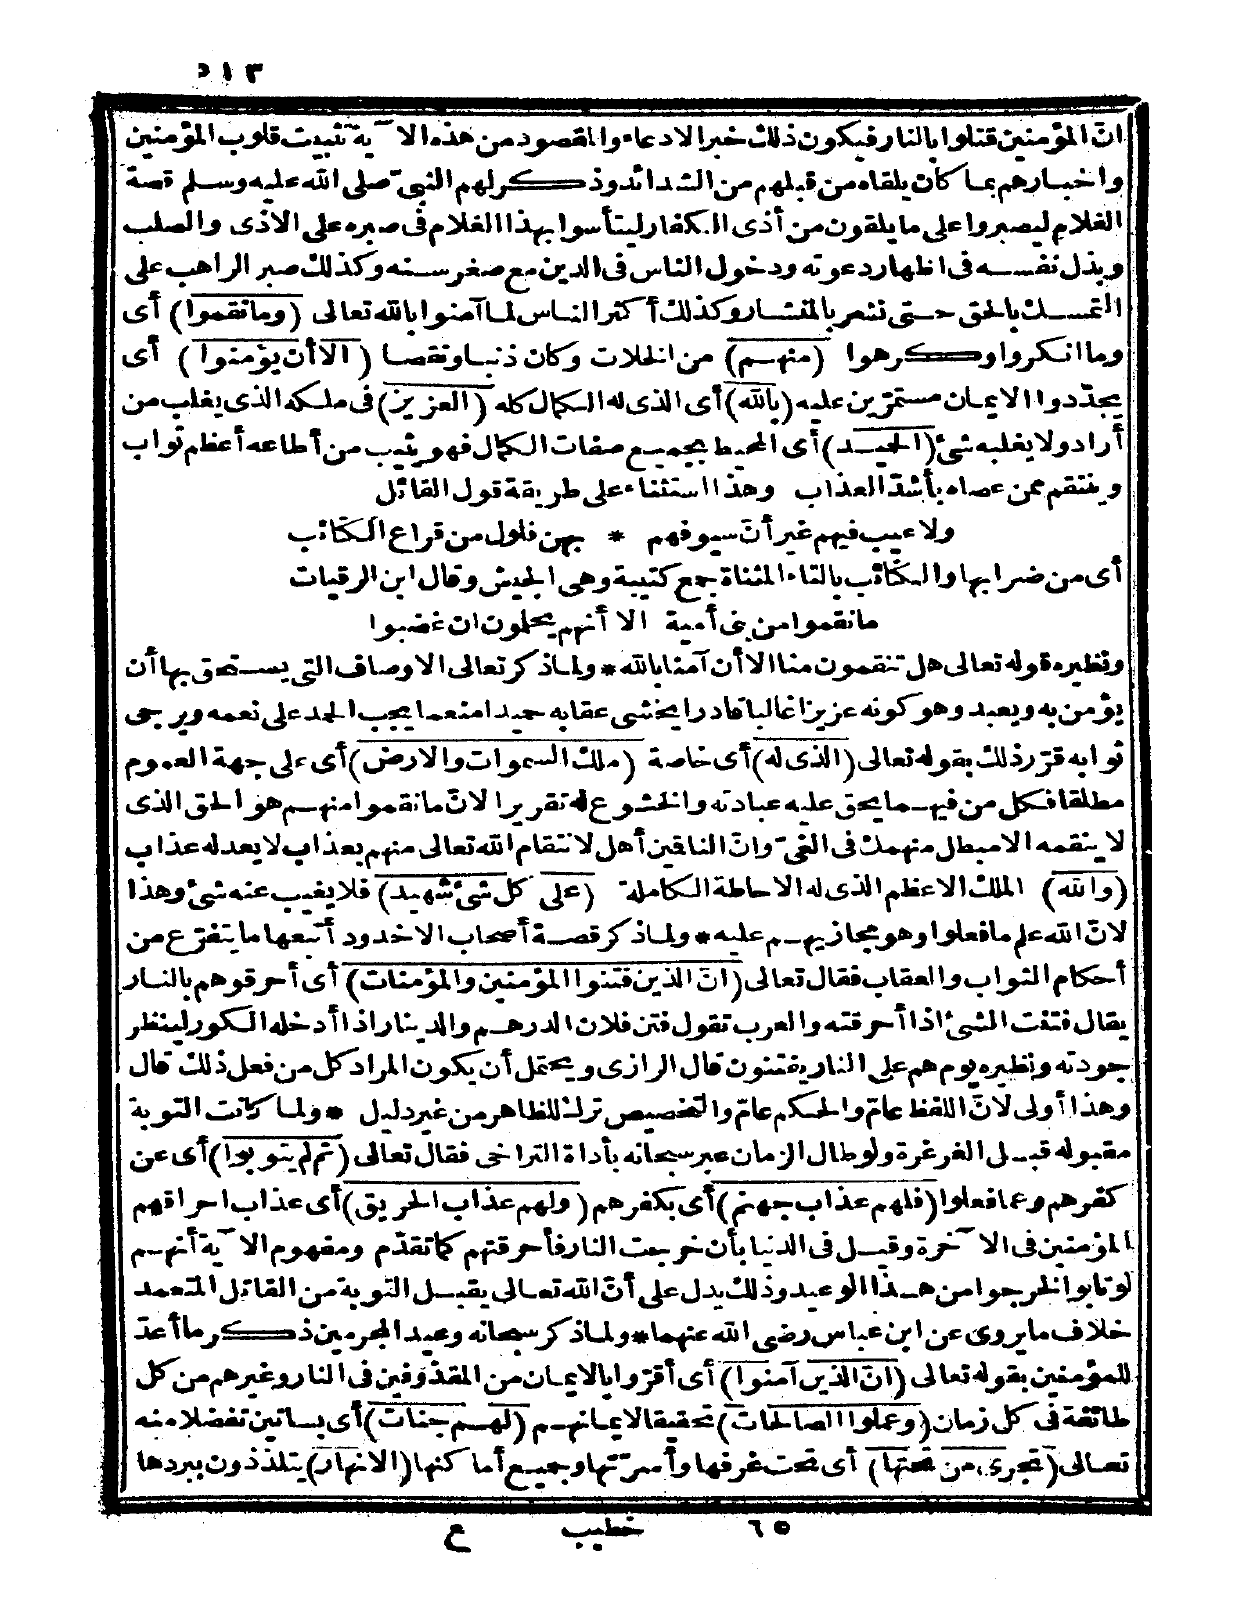 ٥١٣
انّ المؤمنين قتلوا بالنار فيكون ذلك خبرا لا دعاء والمقصود من هذه الآية تثبيت قلوب المؤمنين
واخبارهم بما كان يلقاه من قبلهم من الشدائد وذكر لهم النبيّ صلى الله عليه وسلم قصة
الغلام ليصبروا على ما يلقون من أذى الكفار ليتأسوا بهذا الغلام فى صبره على الاذى والصلب
وبذل نفسه فى اظهار دعوته ودخول الناس فى الدين مع صغر سنه وكذلك صبر الراهب على
التمسك بالحق حتى نشر بالمنشار وكذلك أكثر الناس لما آمنوا بالله تعالى (وما نقموا) أى
وما انكروا وكرهوا (منهم) من الخلات وكان ذنبا ونقصا (الا أن يؤمنوا) أى
يجدّدوا الايمان مستمرّين عليه (بالله) أى الذى له الكمال كله (العزيز) فى ملكه الذى يغلب من
أراد ولا يغلبه شئ (الحميد) أى المحيط بجميع صفات الكمال فهو يثيب من أطاعه أعظم ثواب
وينتقم ممن عصاه بأشدّ العذاب وهذا استثناء على طريقة قول القائل
ولا عيب فيهم غير أنّ سيوفهم * بهن فلول من قراع الكتائب
أى من ضرابها والكتائب بالتاء المثناة جمع كتيبة وهى الجيش وقال ابن الرقيات
ما نقموا من بنى أمية الا أنهم يحلمون ان غضبوا
ونظيره قوله تعالى هل تنقمون منا الا أن آمنا بالله * ولما ذكر تعالى الاوصاف التى يستحق بها أن
يؤمن به ويعبد وهو كونه عزيزا غالبا قادرا يخشى عقابه حميدا منعما يجب الحمد على نعمه ويرجى
ثوابه قرّر ذلك بقوله تعالى (الذى له) أى خاصة (ملك السموات والارض) أى على جهة العموم
مطلقا فكل من فيهما يحق عليه عبادته والخشوع له تقريرا لانّ ما نقموا منهم هو الحق الذى
لا ينقمه الا مبطل منهمك فى الغىّ وانّ الناقمين أهل لانتقام الله تعالى منهم بعذاب لا يعدله عذاب
(والله) الملك الاعظم الذى له الاحاطة الكاملة (على كل شئ شهيد) فلا يغيب عنه شئ وهذا
لانّ الله علم ما فعلوا وهو مجازيهم عليه * ولما ذكر قصة أصحاب الاخدود أتبعها ما يتفرّع من
أحكام الثواب والعقاب فقال تعالى (انّ الذين فتنوا المؤمنين والمؤمنات) أى أحرقوهم بالنار
يقال فتنت الشئ اذا أحرقته والعرب تقول فتن فلان الدرهم والدينار اذا أدخله الكور لينظر
جودته ونظيره يوم هم على النار يفتنون قال الرازى ويحتمل أن يكون المراد كل من فعل ذلك قال
وهذا أولى لانّ اللفظ عامّ والحكم عامّ والتخصيص ترك للظاهر من غير دليل * ولما كانت التوبة
مقبولة قبل الغرغرة ولو طال الزمان عبر سبحانه بأداة التراخى فقال تعالى (ثم لم يتوبوا) أى عن
كفرهم وعما فعلوا (فلهم عذاب جهنم) أى بكفرهم (ولهم عذاب الحريق) أى عذاب احراقهم
المؤمنين فى الآخرة وقيل فى الدنيا بأن خرجت النار فأحرقتهم كما تقدّم ومفهوم الآية أنهم
لو تابوا لخرجوا من هذا الوعيد وذلك يدل على أنّ الله تعالى يقبل التوبة من القاتل المتعمد
خلاف ما يروى عن ابن عباس رضى الله عنهما * ولما ذكر سبحانه وعيد المجرمين ذكر ما أعدّ
للمؤمنين بقوله تعالى (انّ الذين آمنوا) أى أقرّوا بالايمان من المقذوفين فى النار وغيرهم من كل
طائفة فى كل زمان (وعملوا الصالحات) تحقيقا لايمانهم (لهم جنات) أى بساتين تفضلا منه
تعالى (تجرى من تحتها) أى تحت غرفها وأسرّتها وجميع أماكنها (الانهار) يتلذذون ببردها
٦٥ خطيب ع